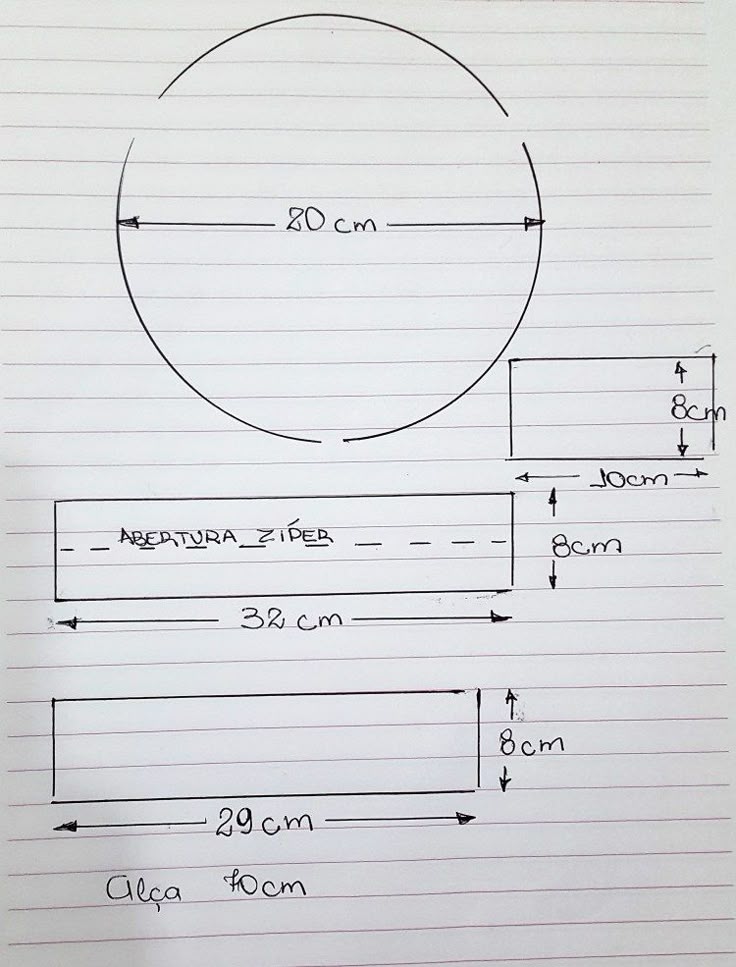 20 cm
8cm
10cm
ABERTURA ZÍPER
8cm
32 cm
8cm
29 cm
Alça 70cm